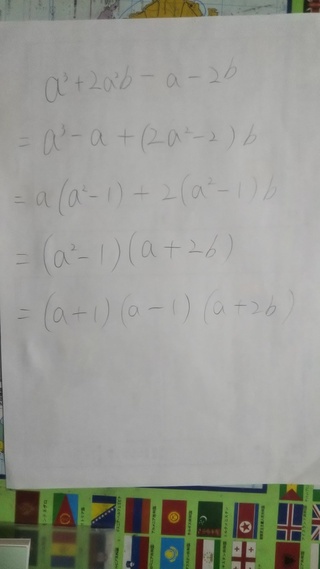 a³+2a²b-a-2b
=a³-a+(2a²-2)b
=a(a²-1)+2(a²-1)b
=(a²-1)(a+2b)
=(a+1)(a-1)(a+2b)